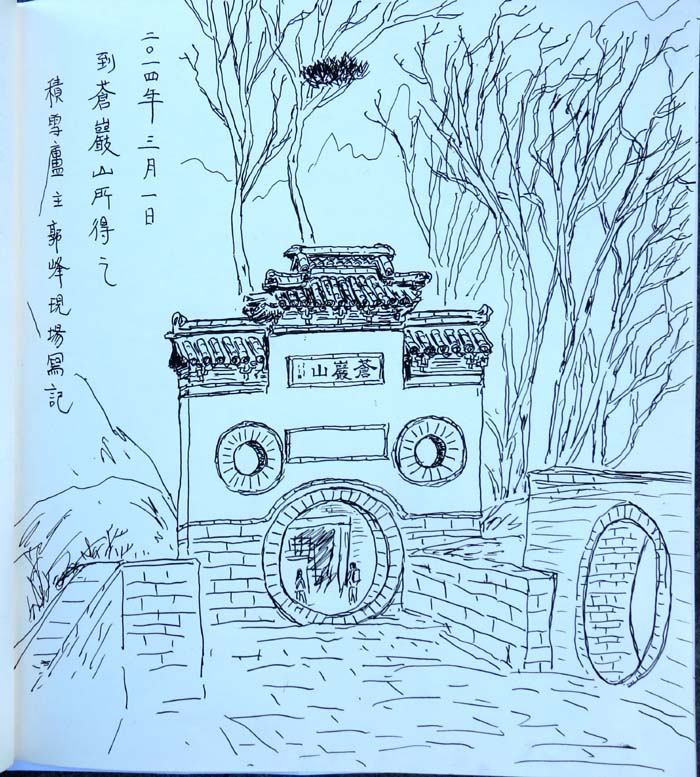 二〇一四年三月一日
到蒼巖山所得之
積雪廬主郭峰現場寫記
蒼巖山